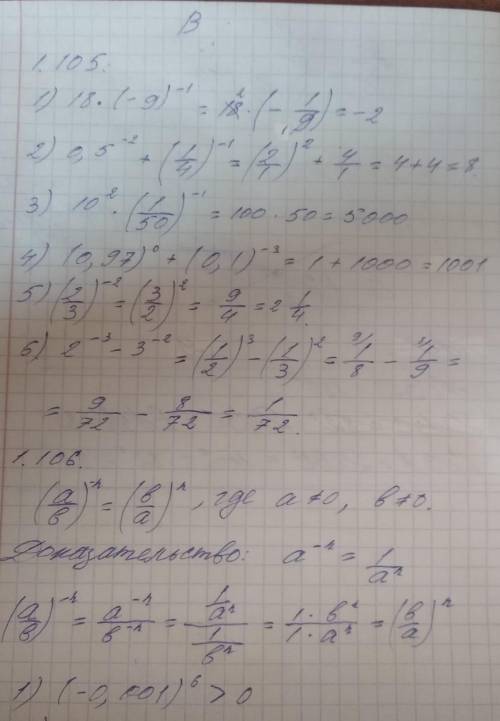 В
1.105.
1) 18·(-9)⁻¹ = 18²·(-1/9) = -2
2) 0,5⁻² + (1/4)⁻¹ = (2/1)² + 4/1 = 4+4=8.
3) 10²·(1/50)⁻¹ = 100·50=5000
4) (0,97)⁰ + (0,1)⁻³ = 1+1000=1001
5) (2/3)⁻² = (3/2)² = 9/4 = 2 1/4.
6) 2⁻³ - 3⁻² = (1/2)³ - (1/3)² = ⁹⁾1/8 - ⁸⁾1/9 =
= 9/72 - 8/72 = 1/72.
1.106.
(a/в)⁻ⁿ = (в/a)ⁿ, где a≠0, в≠0.
Доказательство: a⁻ⁿ = 1/aⁿ
(a/в)⁻ⁿ = a⁻ⁿ/в⁻ⁿ = (1/aⁿ)/(1/вⁿ) = 1·вⁿ/1·aⁿ = (в/a)ⁿ
1) (-0,001)⁶ > 0